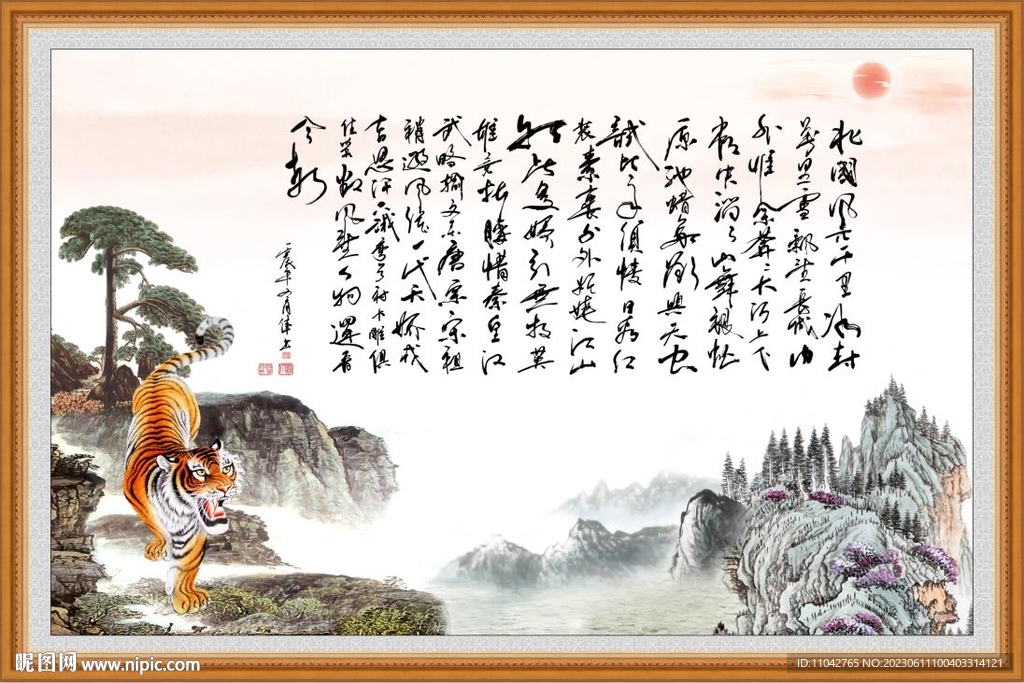 北國風光千里冰封
萬里雪飄望長城内
外惟余莽莽大河上下
頓失滔滔山舞銀蛇
原馳蠟象欲與天公
試比高須晴日看紅
裝素裹分外妖嬈江山
如此多嬌引無數英
雄競折腰惜秦皇漢
武略輸文采唐宗宋祖
稍遜風騷一代天驕成
吉思汗只識彎弓射大雕俱
往矣數風流人物還看
今朝
昵图网 www.nipic.com
ID:11042765 NO:20230611100403314121